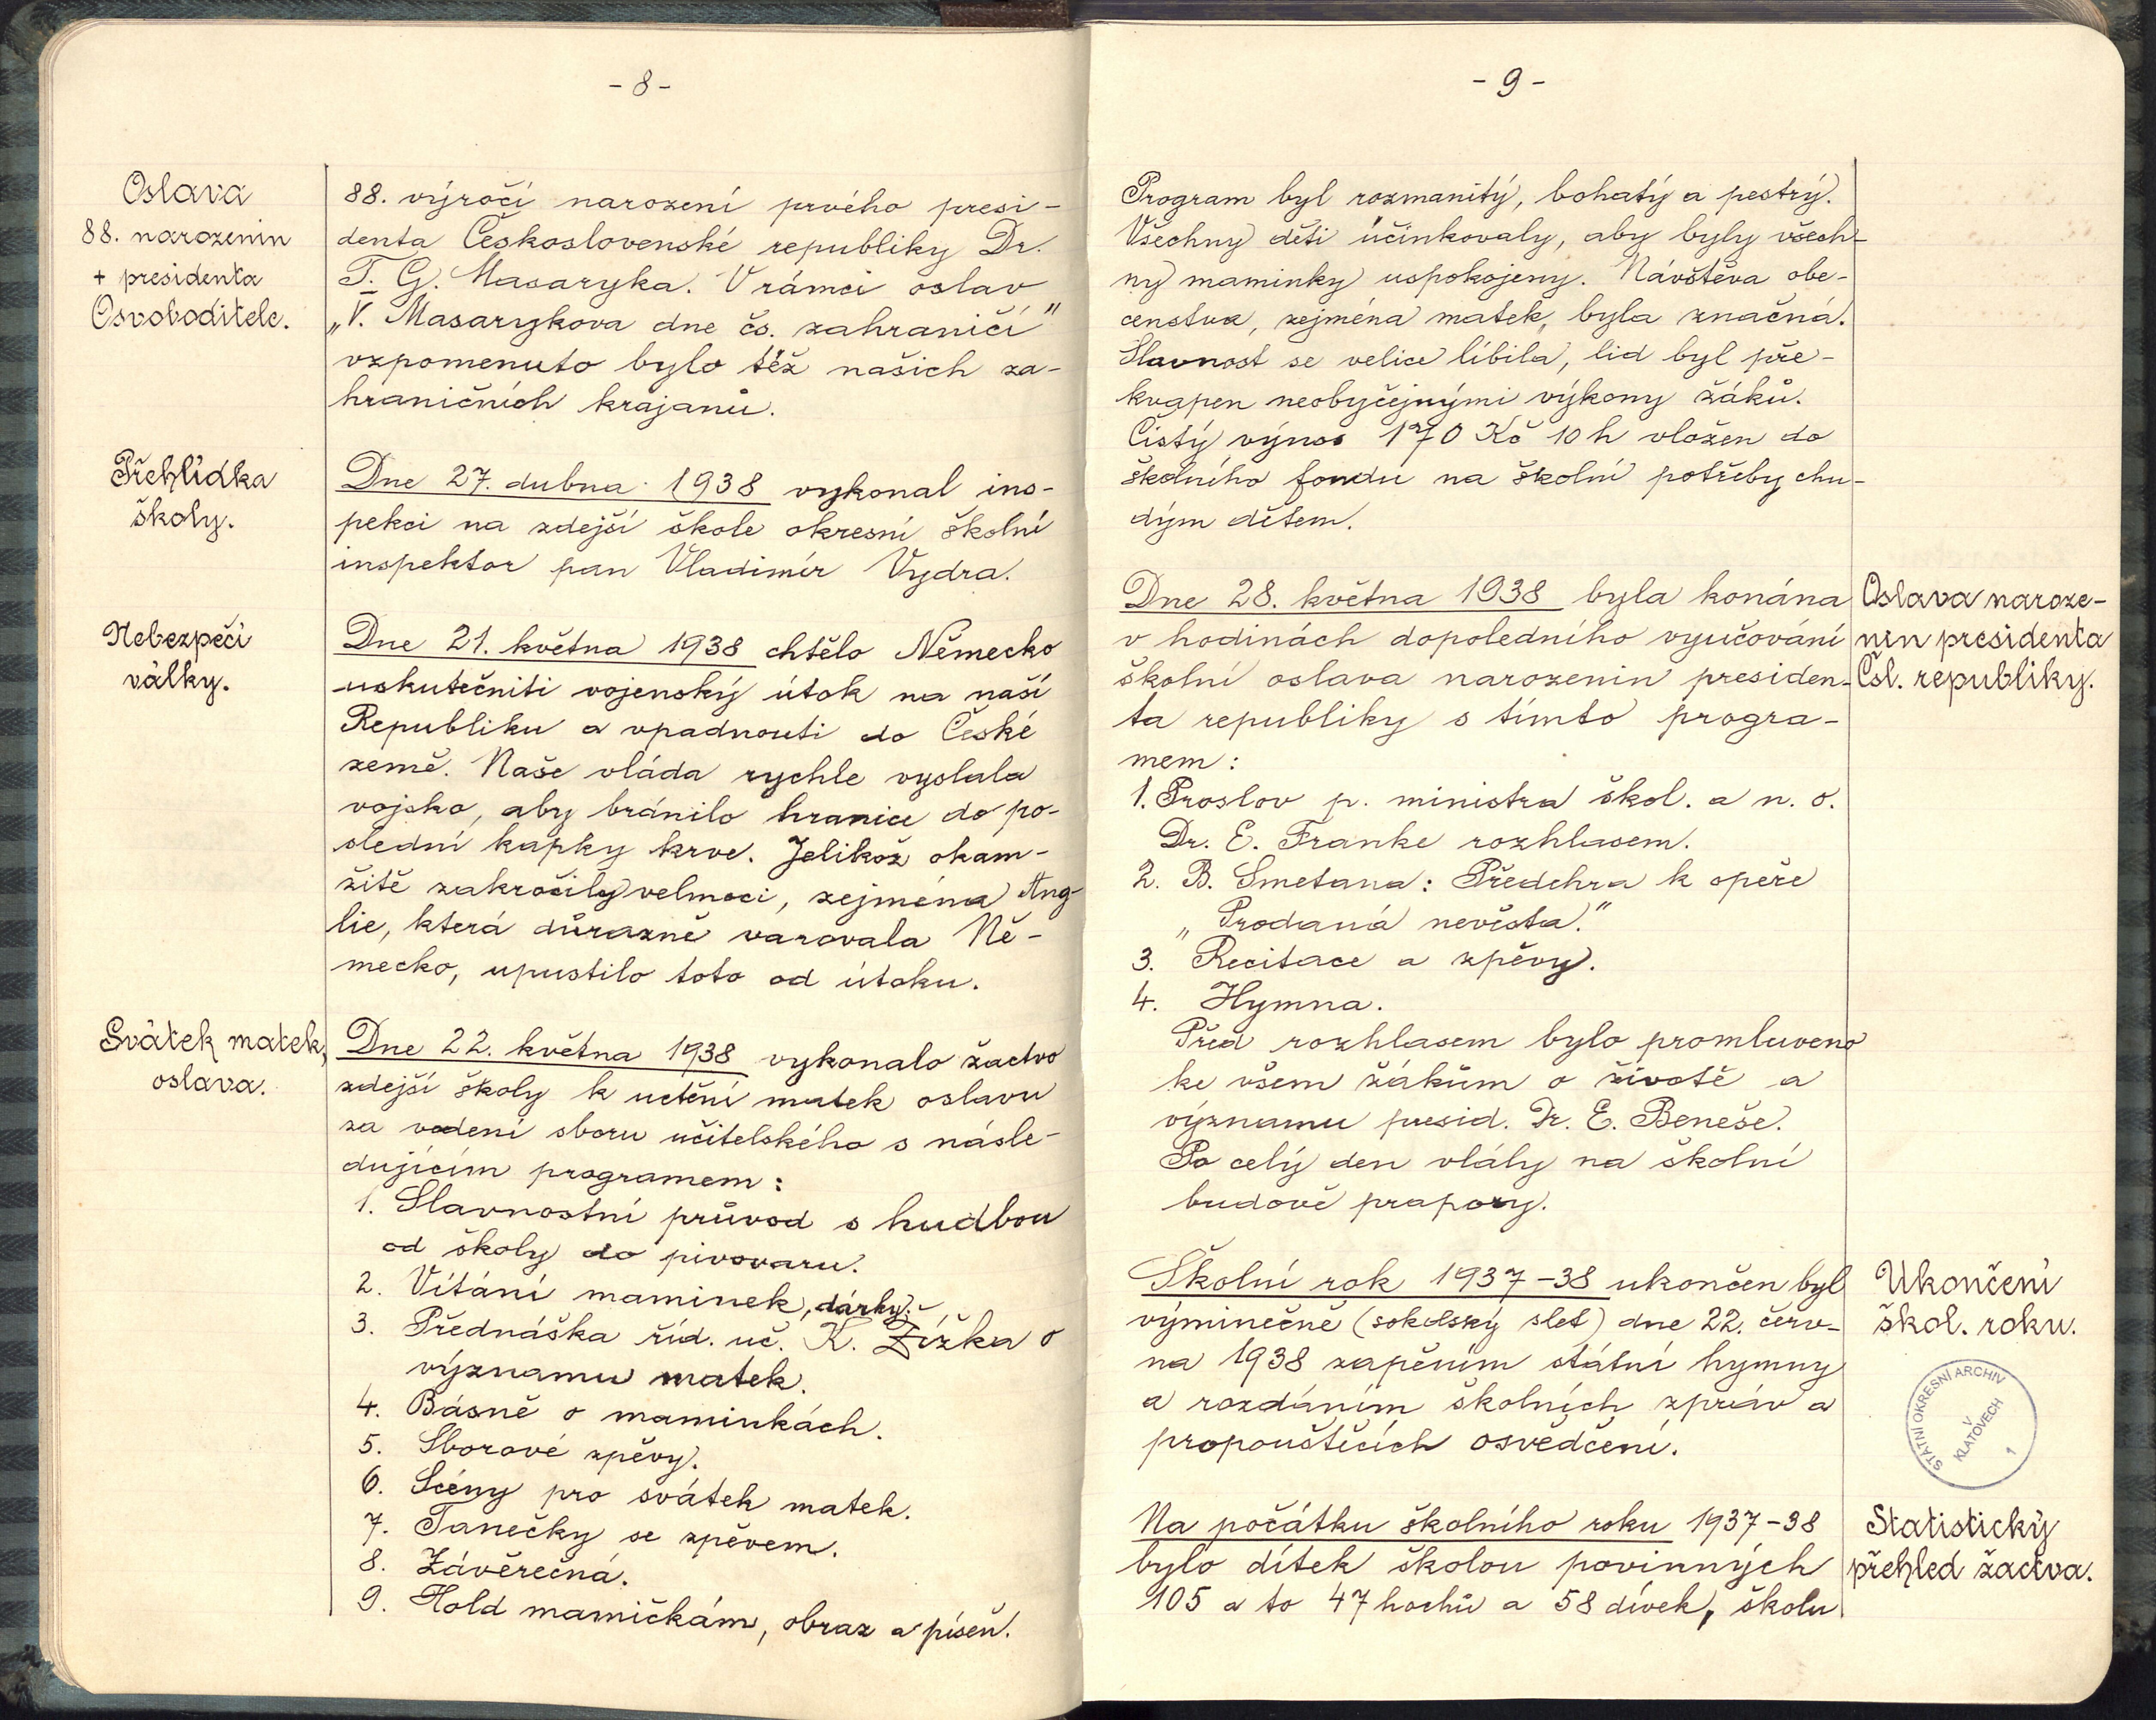 - 8 -
Oslava
88. narozenin
+ presidenta
Osvoboditele.
88. výročí narození prvého presi-
denta Československé republiky Dr.
T. G. Masaryka. V rámci oslav
„V. Masarykova dne čs. zahraničí"
vzpomenuto bylo též našich za-
hraničních krajanů.
Přehlídka
školy.
Dne 27. dubna 1938 vykonal ins-
pekci na zdejší škole okresní školní
inspektor pan Vladimír Vydra.
Nebezpečí
války.
Dne 21. května 1938 chtělo Německo
uskutečniti vojenský útok na naší
Republiku a vpadnouti do České
země. Naše vláda rychle vyslala
vojsko, aby bránilo hranice do po-
slední kapky krve. Jelikož okam-
žitě zakročily velmoci, zejména Ang-
lie, která důrazně varovala Ně-
mecko, upustilo toto od útoku.
Svátek matek,
oslava.
Dne 22. května 1938 vykonalo žactvo
zdejší školy k uctění matek oslavu
za vedení sboru učitelského s násle-
dujícím programem:
1. Slavnostní průvod s hudbou
od školy do pivovaru.
2. Vítání maminek, dárky.
3. Přednáška říd. uč. K. Žížka o
významu matek.
4. Básně o maminkách.
5. Sborové zpěvy.
6. Scény pro svátek matek.
7. Tanečky se zpěvem.
8. Závěrečná.
9. Hold mamičkám, obraz a píseň.
- 9 -
Program byl rozmanitý, bohatý a pestrý.
Všechny děti účinkovaly, aby byly všech-
ny maminky uspokojeny. Návštěva obe-
censtva, zejména matek, byla značná.
Slavnost se velice líbila, lid byl pře-
kvapen neobyčejnými výkony žáků.
Čistý výnos 170 Kč 10 h vložen do
školního fondu na školní potřeby chu-
dým dětem.
Dne 28. května 1938 byla konána
v hodinách dopoledního vyučování
školní oslava narozenin presiden-
ta republiky s tímto progra-
mem:
Oslava naroze-
nin presidenta
Čsl. republiky.
1. Proslov p. ministra škol. a n. o.
Dr. E. Franke rozhlasem.
2. B. Smetana: Předehra k opeře
„Prodaná nevěsta."
3. Recitace a zpěvy.
4. Hymna.
Před rozhlasem bylo promluveno
ke všem žákům o životě a
významu presid. Dr. E. Beneše.
Po celý den vlály na školní
budově prapory.
Školní rok 1937-38 ukončen byl
výminečně (sokolský slet) dne 22. červ-
na 1938 zapěním státní hymny
a rozdáním školních zpráv a
propouštěcích osvědčení.
Ukončení
škol. roku.
STÁTNÍ OKRESNÍ ARCHIV
V
KLATOVECH
1
Na počátku školního roku 1937-38
bylo dítek školou povinných
105 a to 47 hochů a 58 dívek, školu
Statistický
přehled žactva.